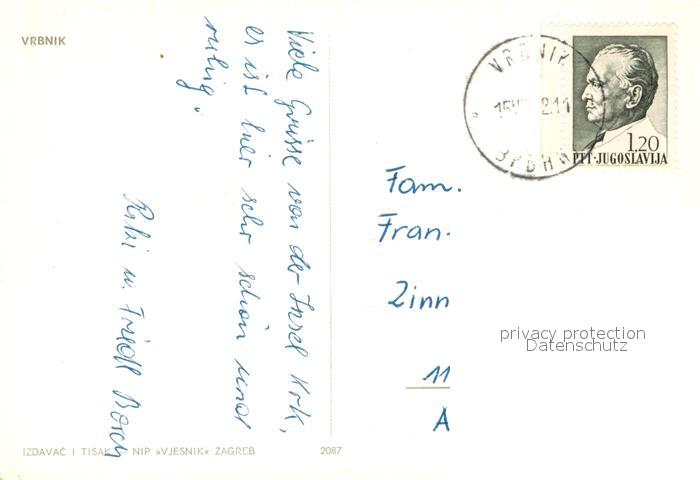 VRBNIK
Viele Grüsse von der Insel Krk,
es ist hier sehr schön und
ruhig.
Rubi u. Friedl Bosch
VRBNIK
ВРБНИК
1.20
PTT·JUGOSLAVIJA
Fam.
Fran.
Zinn
11
A
privacy protection
Datenschutz
IZDAVAČ I TISAK NIP »VJESNIK« ZAGREB
2087